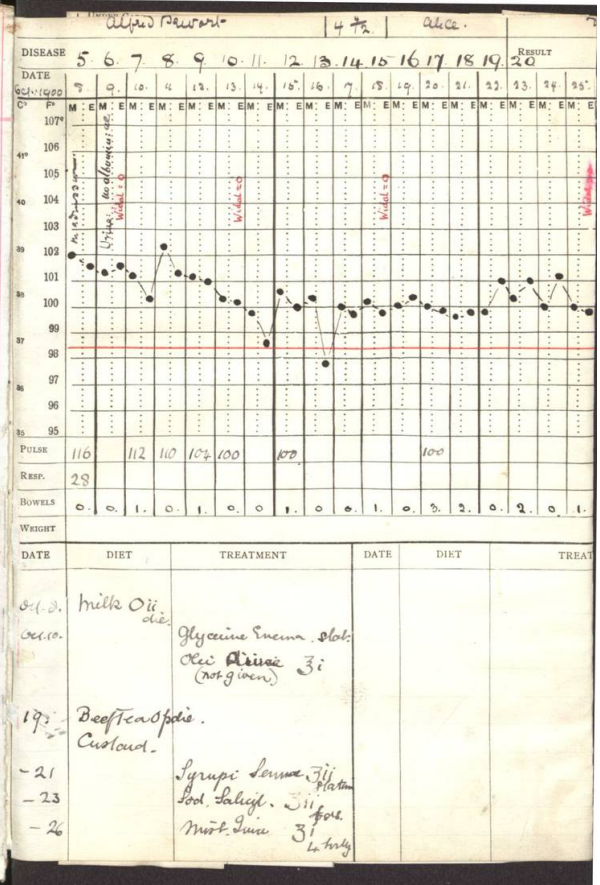 Alfred 4 4/12 Alice.
DISEASE 5 6. 7. 8. 9. 10. 11. 12 13. 14. 15 16 17 18 19. 20 RESULT
DATE
Oct. 1900 8 9. 10. 11 12. 13. 14. 15 16. 17. 18. 19. 20. 21. 22. 23. 24. 25.
C° F° M : E M : E M : E M : E M : E M : E M : E M : E M : E M : E M : E M : E M : E M : E M : E M : E M : E M : E
107°
41° 106
105
40 104
103
39 102
101
38 100
99
37 98
97
36 96
35 95
Urine: no albuminiae
Widal = 0
Widal = 0
Widal = 0
PULSE 116 112 110 104 100 100 100
RESP. 28
BOWELS 0. 0. 1. 0. 1. 0. 0 1. 0 0. 1. 0. 3. 2. 0. 2. 0. 1.
WEIGHT
DATE DIET TREATMENT DATE DIET TREAT
Oct. 9. Milk Oii die.
Oct. 10. Glycerine Enema stat.
Olei ʒi
(not given)
19. Beef Tea die.
Custard.
- 21 Syrupi Sennae ʒij statim
- 23 Sod. Salicyl.
- 26 Mist. ʒi 4 hrly